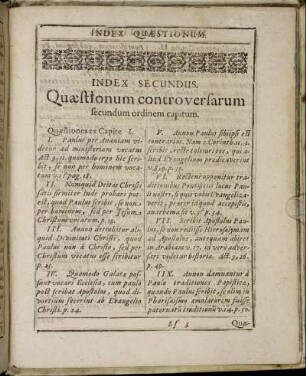 INDEX QUÆSTIONUM.
INDEX SECUNDUS.
Quæstionum controversarum
secundum ordinem capitum.
Quæstiones ex Capite I.
I. Paulus per Ananiam
videtur ad ministerium vocatus
Act. 9, 11. quomodo ergo hîc scri-
bit, se non per hominem voca-
tum? v. 1. pag. 18.
II. Numquid Deitas Christi
satis firmiter inde probari pot-
est, quod Paulus scribit, se non
per hominem, sed per Jesum
Christum vocatum. p. 19.
III. Annon derogabitur ali-
quid Divinitati Christi, quod
Paulus non à Christo, sed per
Christum vocatus esse scribitur
p. 23.
IV. Quomodo Galatæ pos-
sunt vocari Ecclesia, cum paulò
post scribat Apostolus, quod di-
vortium fecerint ab Evangelio
Christi. p. 24.
V. Annon Paulus sibi ipsi est
contrarius. Nam 2. Corinth. 11. 4.
scribit, rectè tolerari eos, qui a-
liud Evangelium prædicaverint
VI. Rectene oppugnatur tra-
ditionibus Pontificiis locus Pau-
li noster, si quis vobis Evangeliza-
verit, præter id quod accepistis,
anathema sit v. 9. p. 34.
VII. Scribit Apostolus Pau-
lus, se non rediisse Hierosolymam
ad Apostolos, antequam abiret
in Arabiam v. 17. in vero adver-
sari videtur historia. Act. 9, 26.
p. 40.
IIX. Annon damnantur à
Paulo traditiones Papisticæ,
quando Paulus scribit, se olim in
Pharisaismo æmulatorem fuisse
paternarū traditionū v. 14. p. 50.
Quæ-